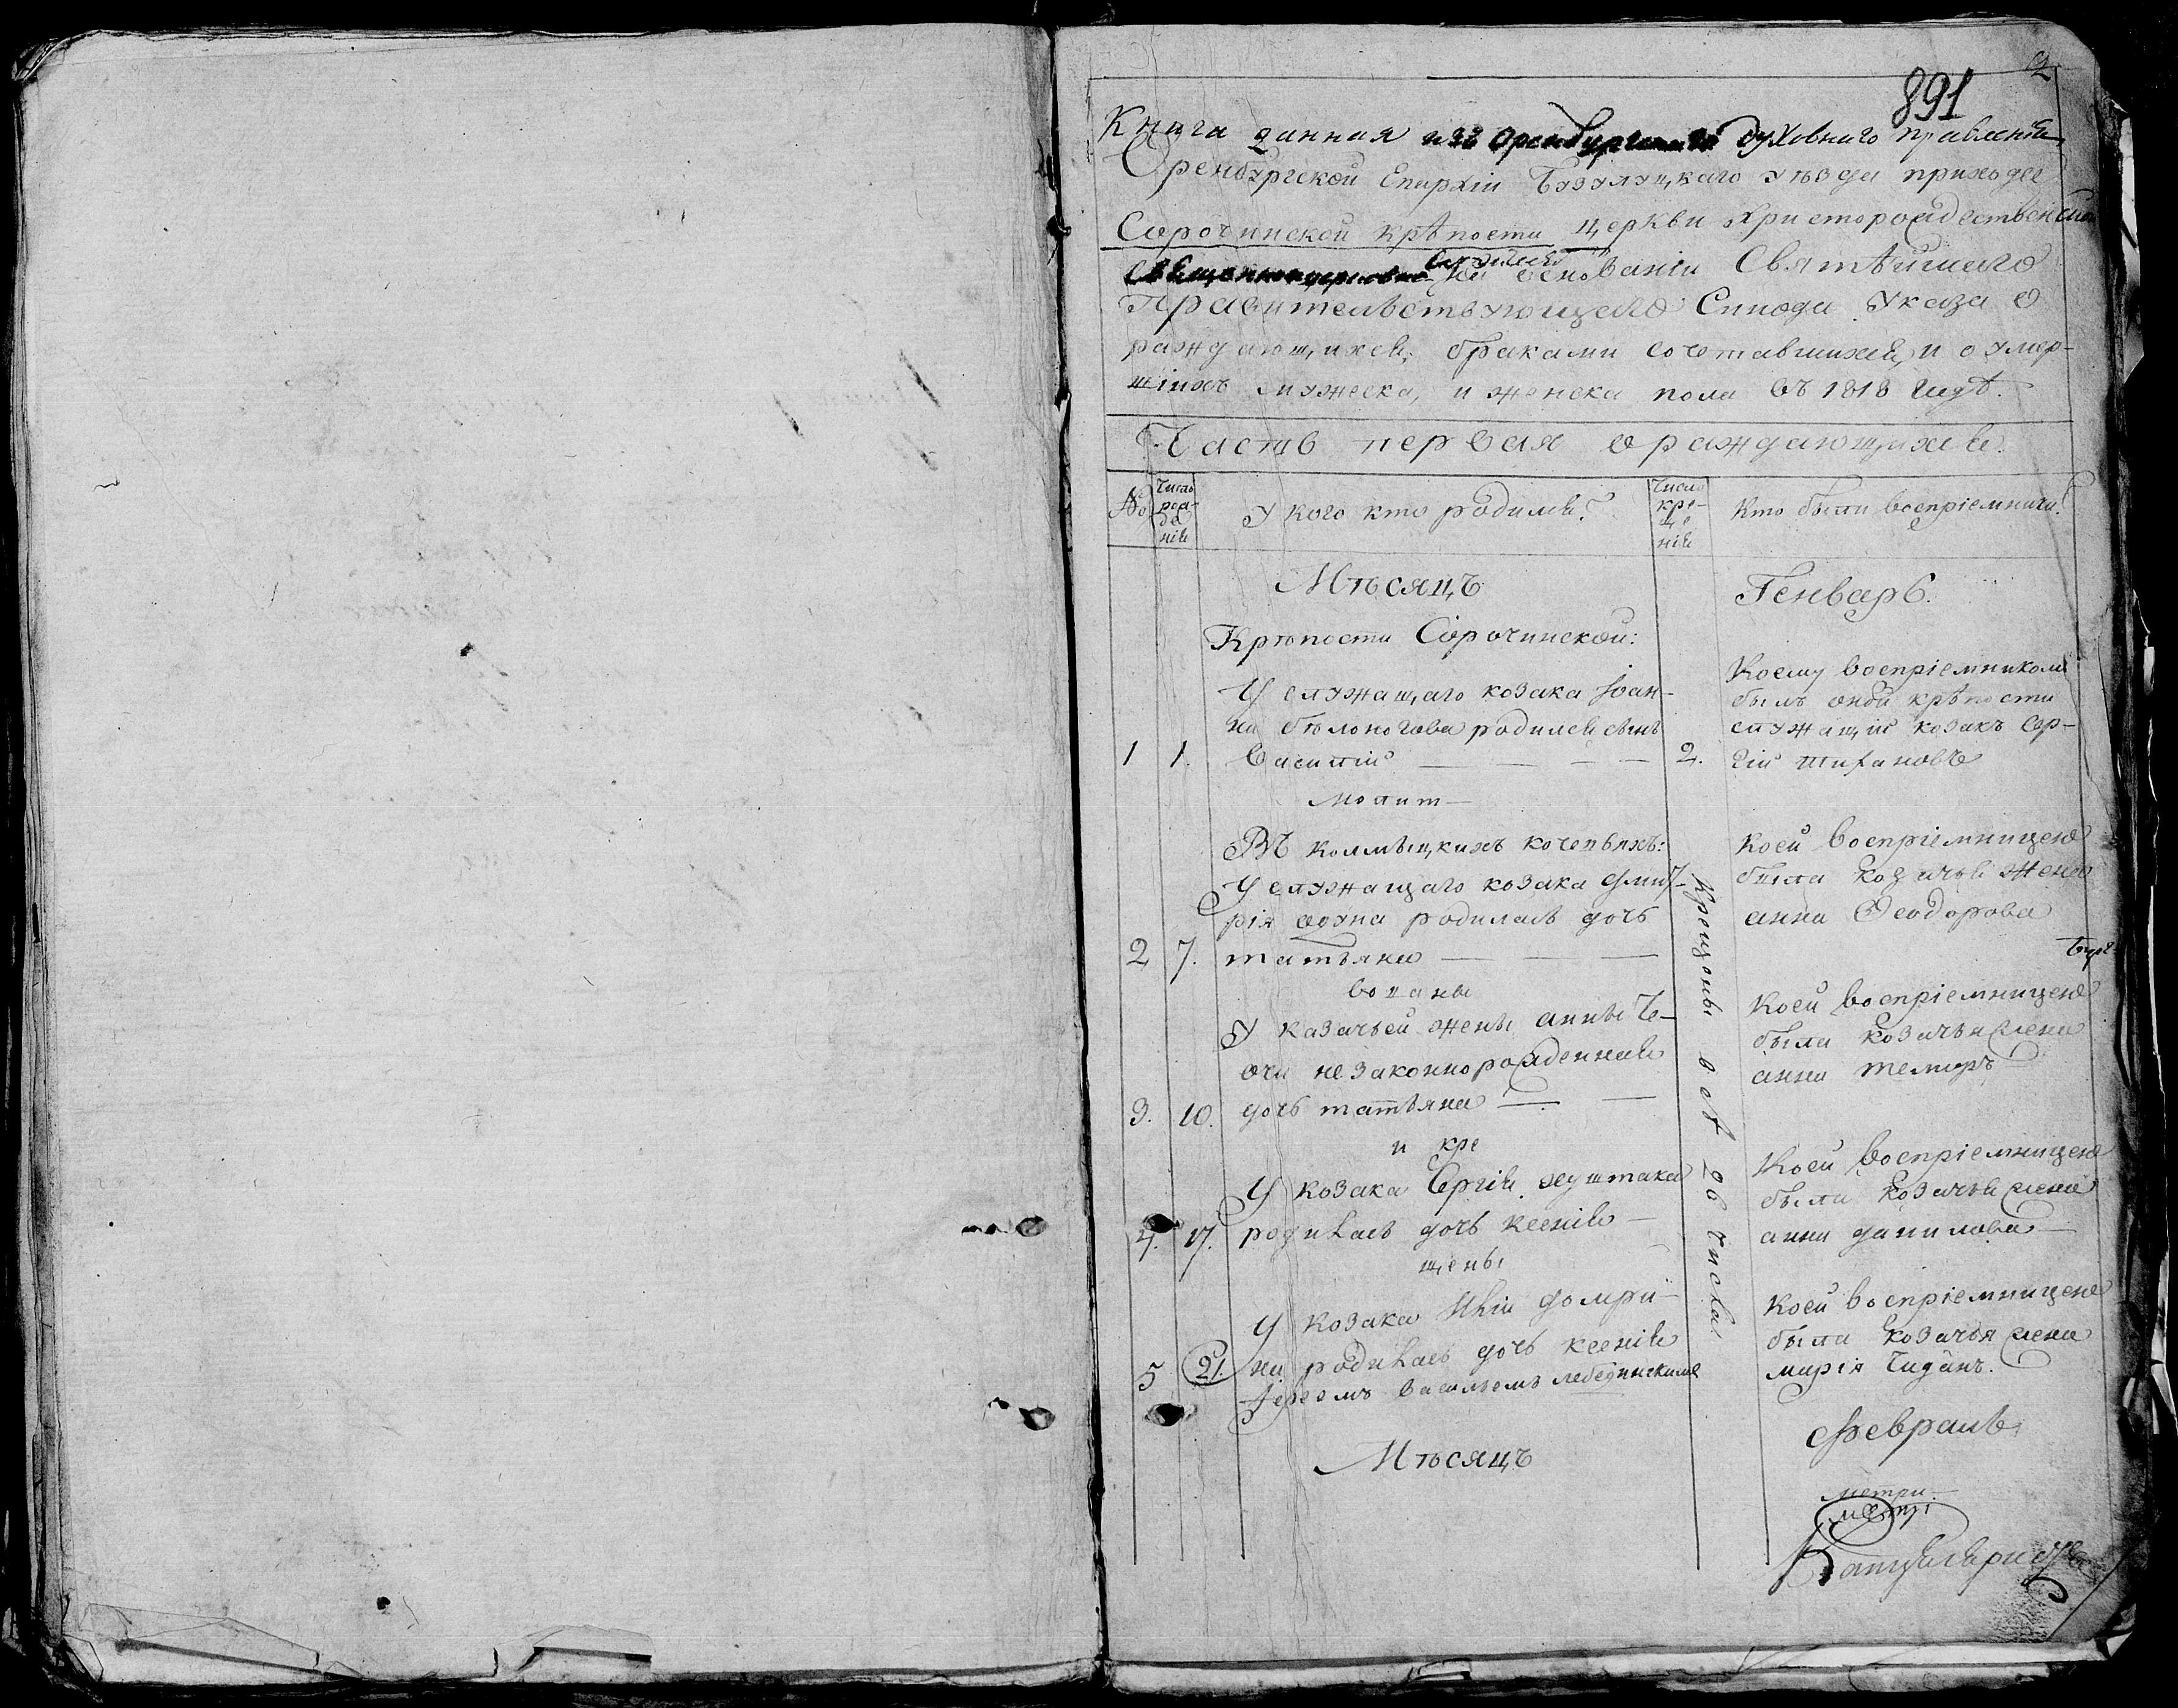 2
891
Книга данная изъ Оренбургскаго духовнаго правленія
Оренбургской Епархіи Бузулуцкаго уѣзда прихода
Сорочинской крѣпости церкви Христорождественской
на основаніи Святѣйшаго
Правительствующаго Синода Указа о
раждающихся, браками сочетавшихся, и о умер-
шіихъ мужеска, и женска пола въ 1818 годѣ.
Часть первая о раждающихся.
№
Число рождѣнія
У кого кто родился?
Число крещенія
Кто были воспріемники?
Мѣсяцъ
Генварь.
Крѣпости Сорочинской:
У служащаго козака Іоан-
на бѣлоногова родился сынъ
1 1. Василій — — — 2.
Коему воспріемникомъ
былъ оной крѣпости
служащій козакъ Сер-
гій
молит—
Въ колмыцкихъ кочевьяхъ:
У служащаго козака дмит-
рія родилась дочь
2 7. татьяна — — —
Коей воспріемницею
была козачья жена
анна Феодорова
вованы
У казачьей жены анны
незаконнорожденная
3. 10. дочь татьяна — —
Коей воспріемницею
была козачья жена
анна
и кре
У козака Сергія
4. 17. родилась дочь ксенія —
Коей воспріемницею
была козачья жена
анна данилова —
щены
У козака
на родилась дочь ксенія
5 21.
Іереемъ Васильемъ лебединскимъ
Коей воспріемницею
была козачья жена
марія
крещены 26 числа
Мѣсяцъ
Февраль
метри